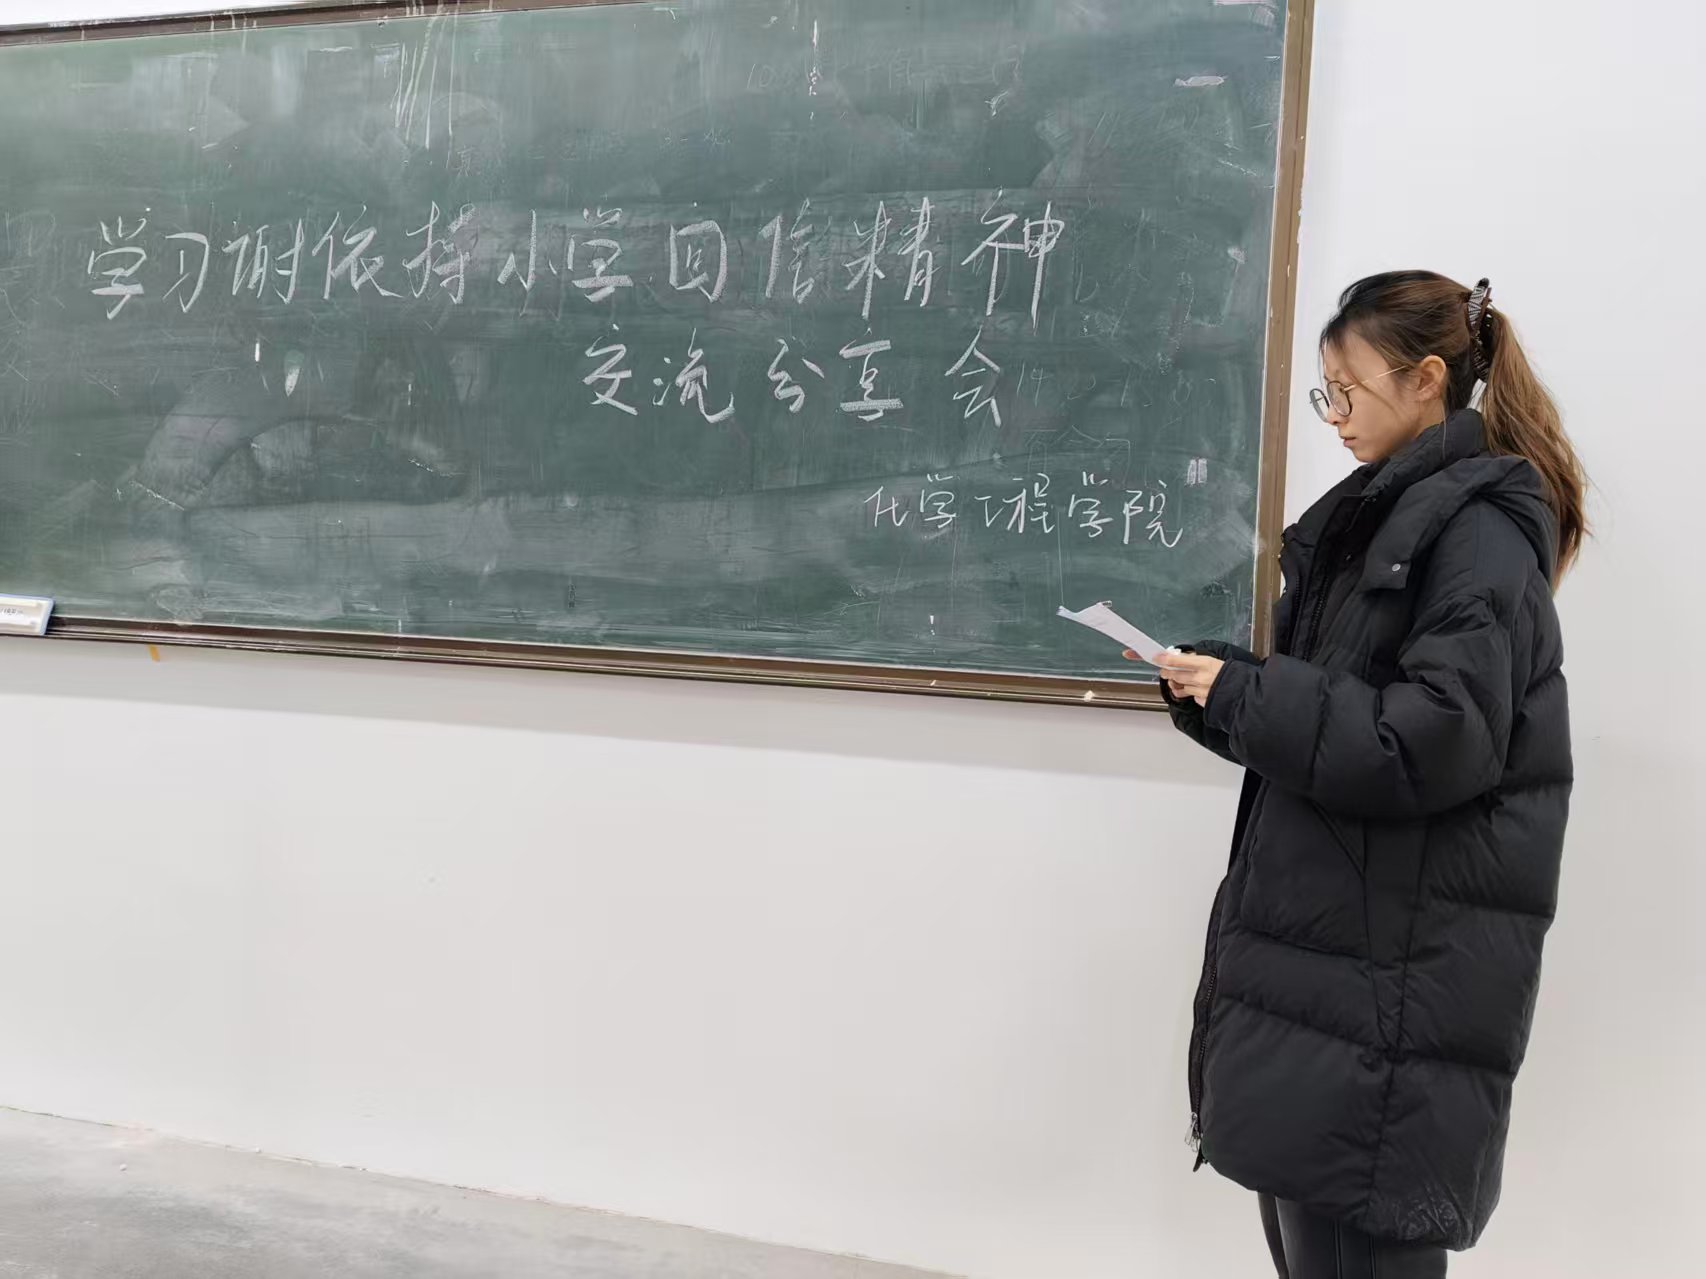 学习谢依特小学回信精神
交流分享会
化学工程学院